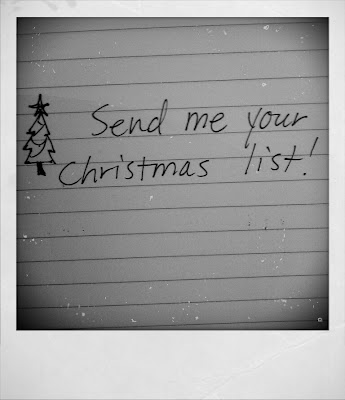 Send me your
Christmas list!